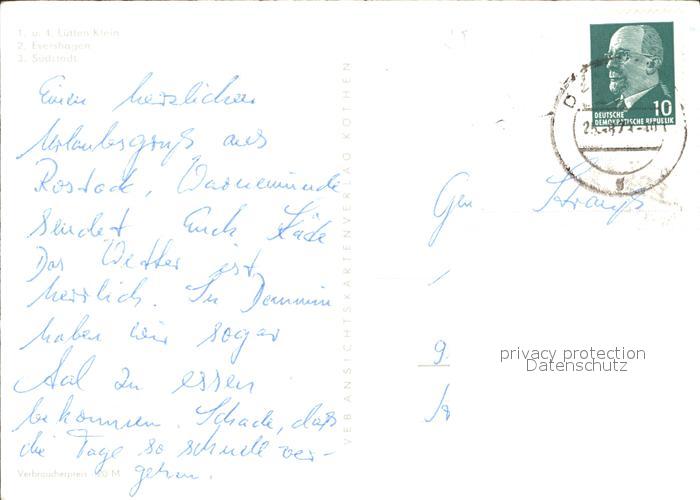 1. u. 4. Lütten Klein
2. Evershagen
3. Südstadt
Einen herzlichen
Urlaubsgruß aus
Rostock, Warnemünde
sendet Euch Käte
Das Wetter ist
herrlich. In Demmin
haben wir sogar
Aal zu essen
bekommen. Schade, daß
die Tage so schnell ver-
gehen.
Verbraucherpreis 0,20 M
VEB ANSICHTSKARTENVERLAG KÖTHEN
DEUTSCHE
DEMOKRATISCHE REPUBLIK
10
Gen
9
privacy protection
Datenschutz